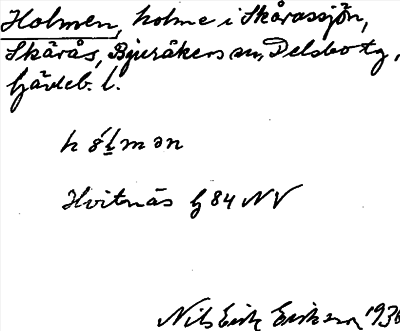 Holmen, holme i Skårassjön,
Skårås, Bjuråkers sn, Delsbo tg,
Gävleb. l.
hólmən
Hvitnäs G 84 NV
Nils Erik Erikson 1936